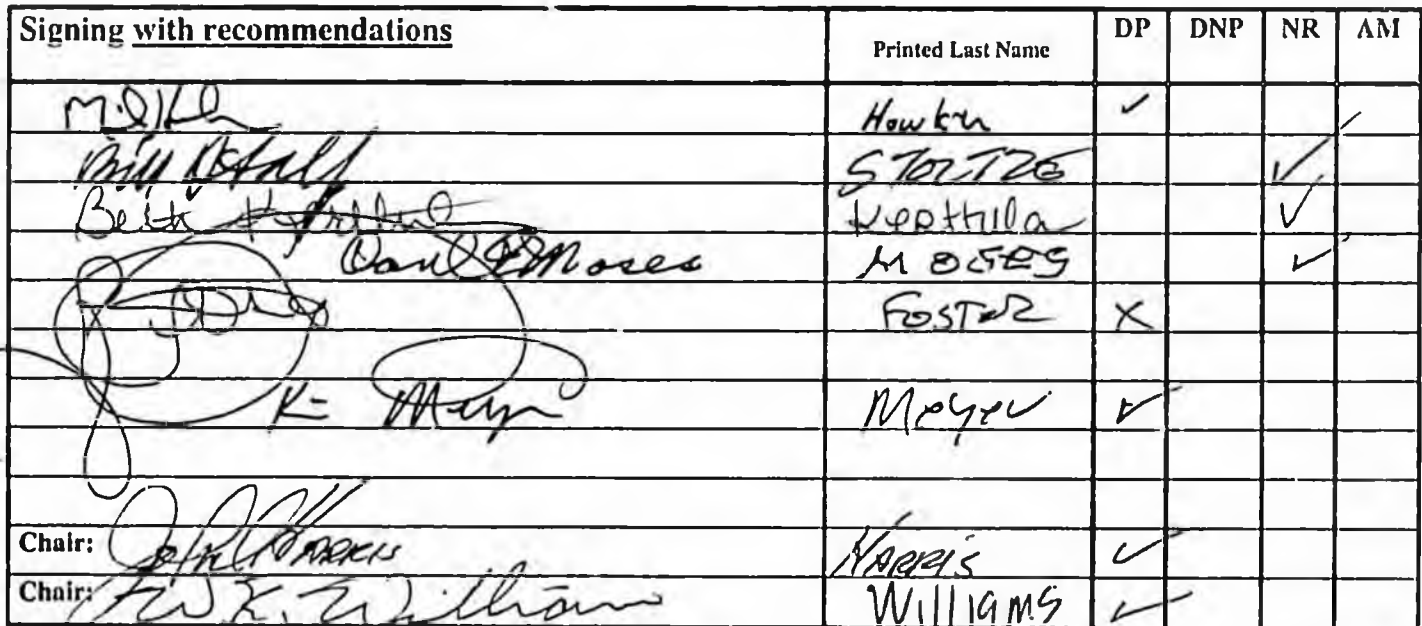 Signing with recommendations Printed Last Name DP DNP NR AM
Hawker ✓
Bill STOLTZE ✓
Beth Kerttula ✓
Carl E Moses MOSES ✓
FOSTER X
K Meyer Meyer ✓
Chair: John Harris HARRIS ✓
Chair: W K. Williams WILLIAMS ✓